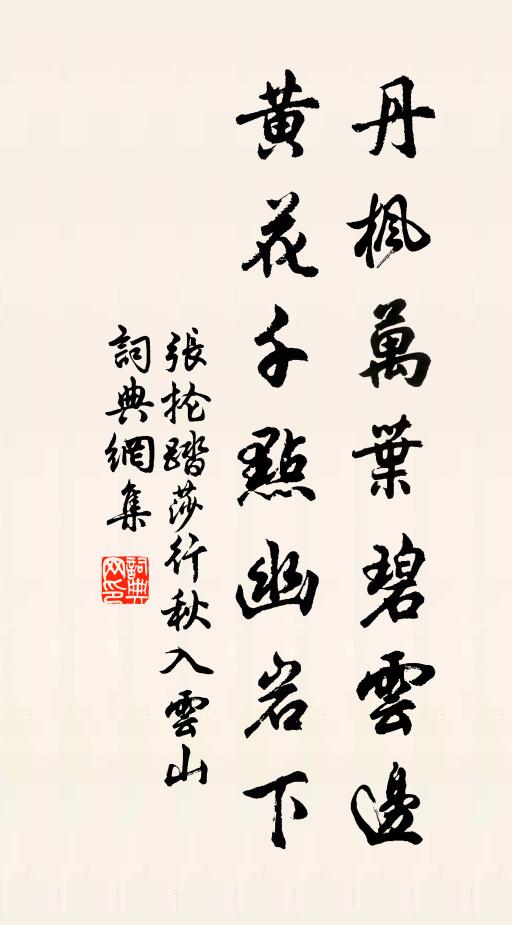 丹楓萬葉碧雲邊
黃花千點幽岩下
張抡踏莎行秋入雲山
詞典網集
詞典网印